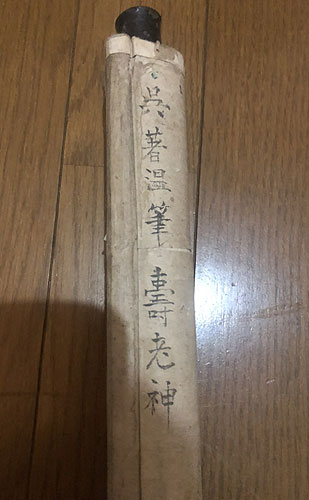 呉著温筆壽老神